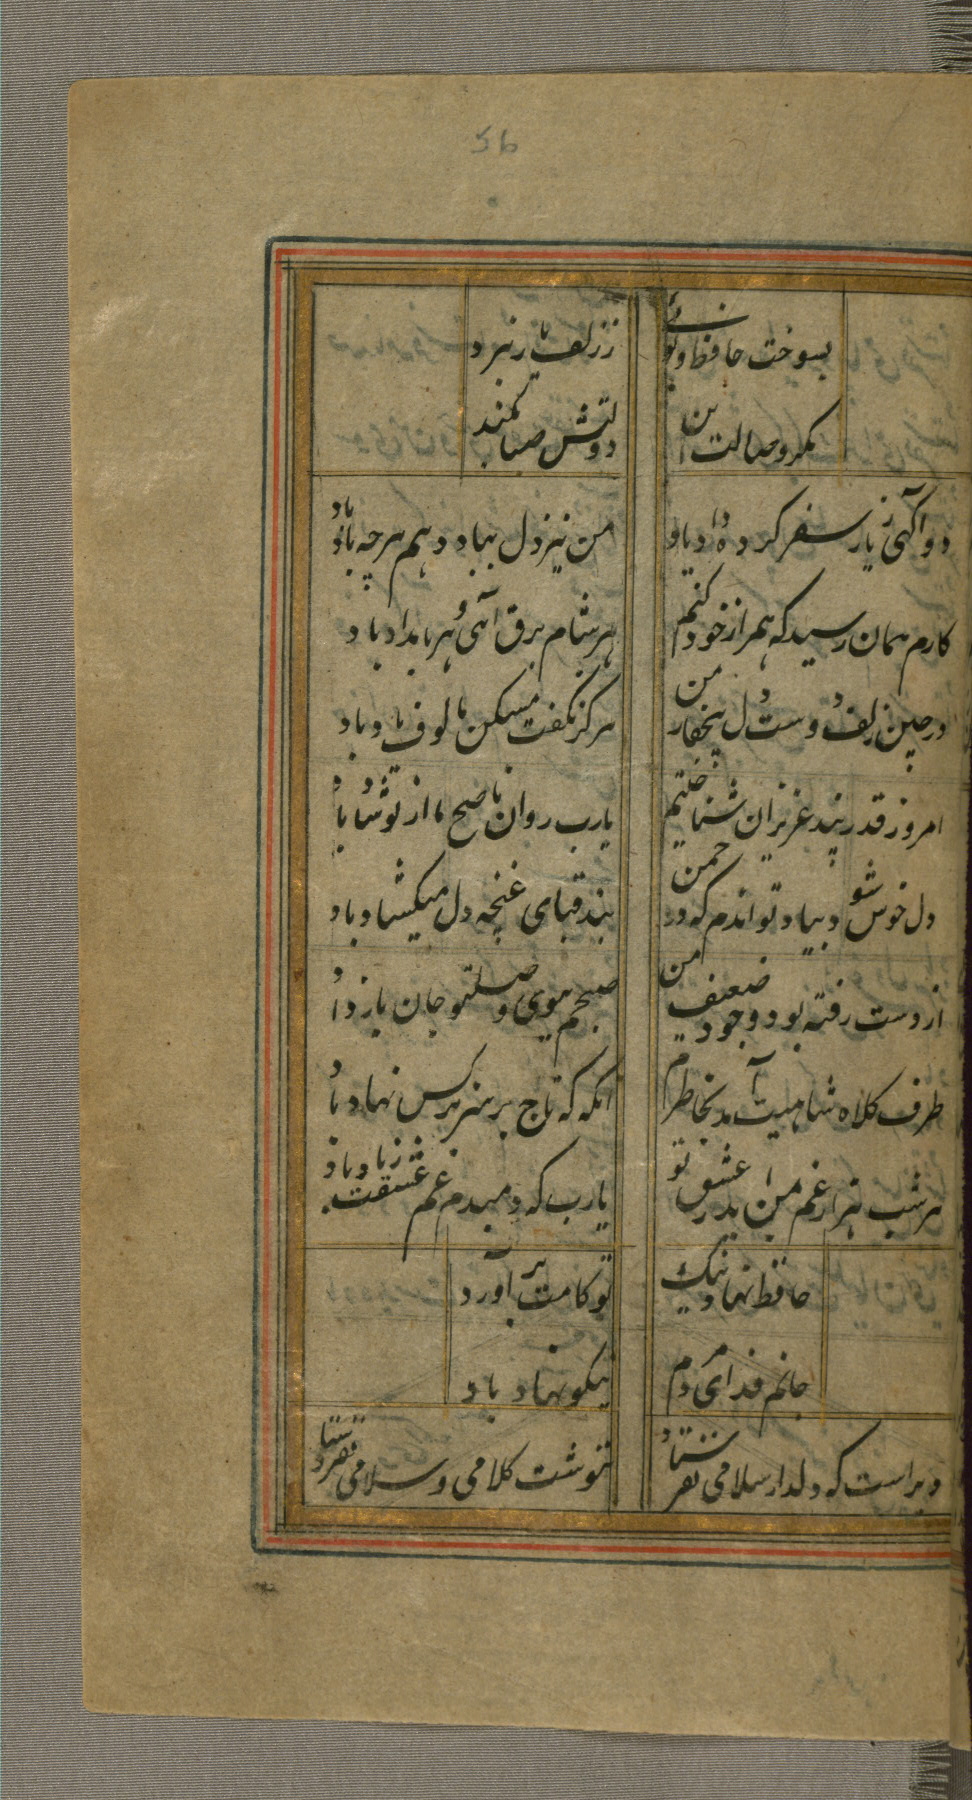 بسوخت حافظ و بوئی ز زلف یار نبرد
مگر وصالت این دولتش صبا بکند
دو آگهی ز یار سفر کرده داد باد من نیز دل بباد دهم هرچه باد باد
کارم بمان رسید که همراز خود کنم هر شام برق آهی و هر بامداد باد
در چین زلف دوست دل بیحفاظ من هرگز نگفت مسکن مالوف یاد باد
امروز قدر پند عزیزان شناختم یارب روان ناصح ما از تو شاد باد
دل خوش شود بیاد تو اندم که در چمن بند قبای غنچه دل میکشاد باد
از دست رفته بود وجود ضعیف من صبحم ببوی وصلتو جان باز داد
طرف کلاه شاهیت آمد بخاطرم انکه که تاج بر سر نرکس نهاد باد
هر شب هزار غم بمن اید ز عشق تو یارب که دمبدم غم عشقت زیاد باد
حافظ نهاد نیک تو کامت بر آورد
جانم فدای مردم نیکو نهاد باد
دیر است که دلدار سلامی نفرستاد ننوشت کلامی و سلامی نفرستاد